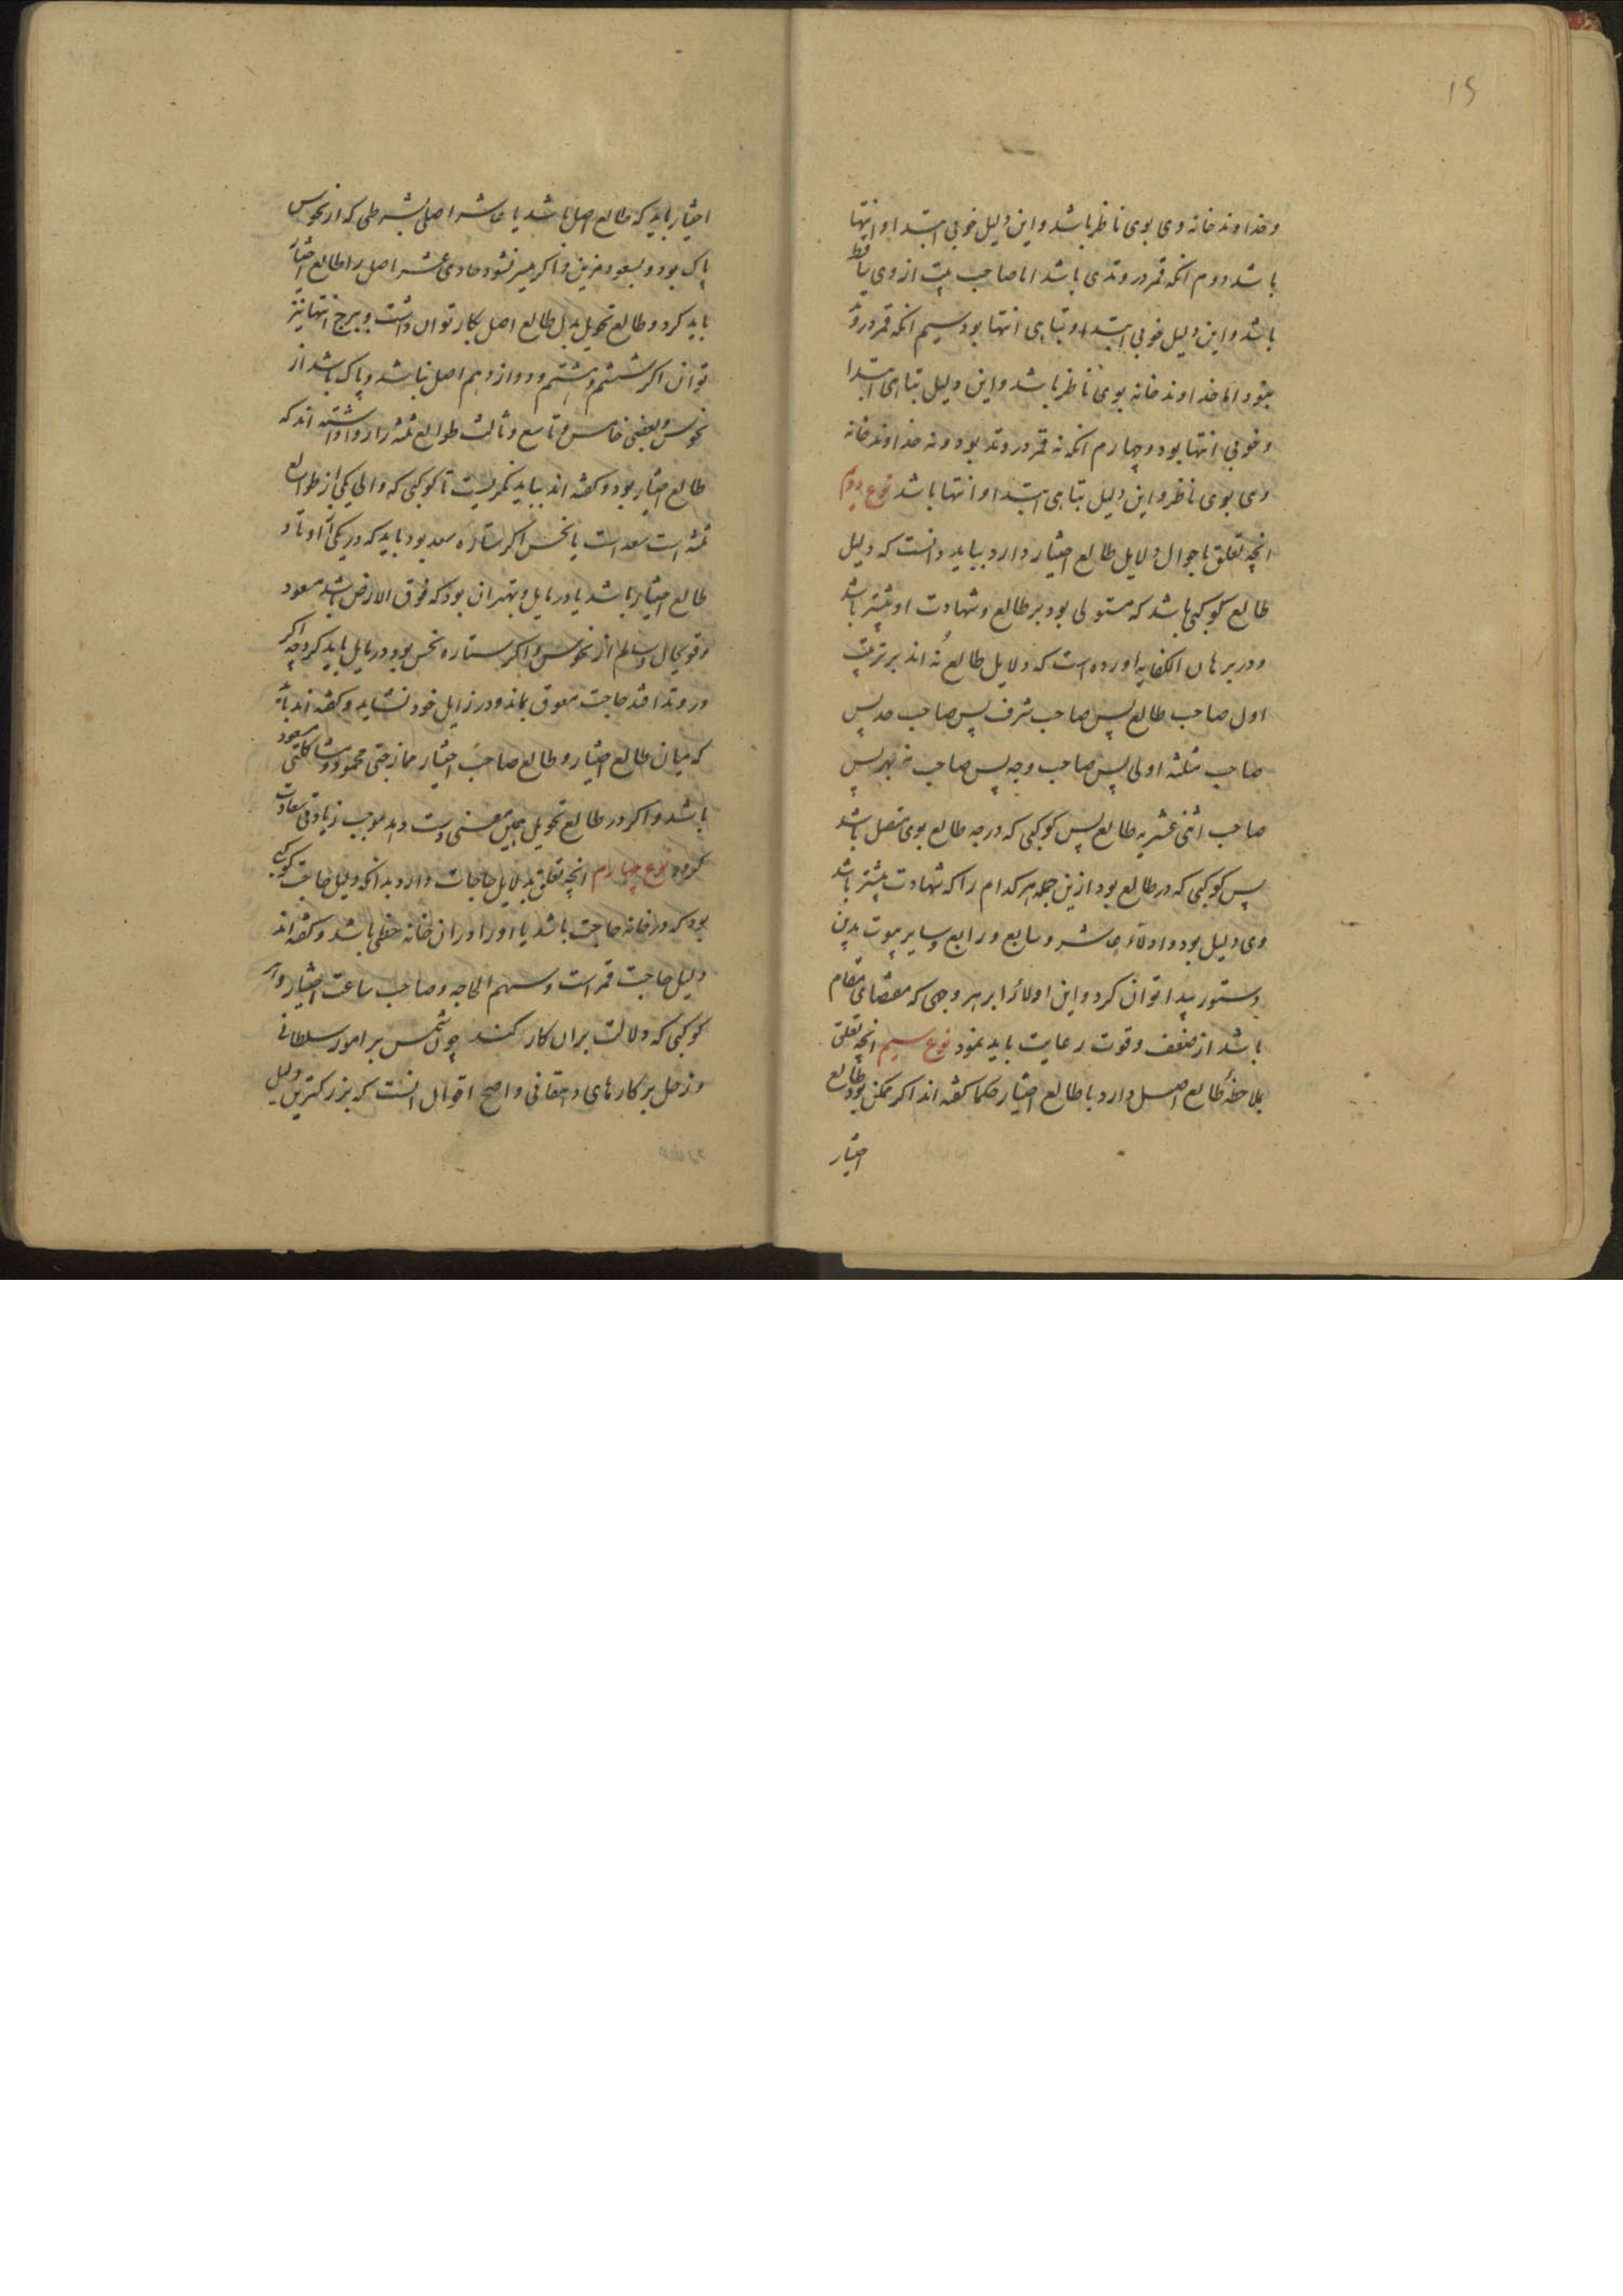 ۱۵
وخداوند خانه وی بوی ناظر باشد واین دلیل خوبی ابتدا وانتها
باشد دوم انکه قمر در وتدی باشد اما صاحب بیت از وی ساقط
باشد واین دلیل خوبی ابتدا وتباهی انتها بود سیم انکه قمر در وتد
نبود اما خداوند خانه بوی ناظر باشد واین دلیل تباهی ابتدا
وخوبی انتها بود وچهارم انکه نه قمر در وتد بود ونه خداوند خانه
وی بوی ناظر واین دلیل تباهی ابتدا وانتها باشد نوع دوم
انچه تعلق باحوال دلایل طالع اختیار دارد بباید دانست که دلیل
طالع کوکبی باشد که مستولی بود بر طالع وشهادت او بیشتر باشد
ودر برهان الکفایه اورده است که دلایل طالع نه اند بر ترتیب
اول صاحب طالع پس صاحب شرف پس صاحب حد پس
صاحب مثلثه اولی پس صاحب وجه پس صاحب نهبهر پس
صاحب اثنی عشریه طالع پس کوکبی که درجه طالع بوی متصل باشد
پس کوکبی که در طالع بود ازین جمله هر کدام را که شهادت بیشتر باشد
وی دلیل بود وادلاء عاشر وسابع ورابع وسایر بیوت بدین
دستور پیدا توان کرد واین ادلاء را بر هر وجهی که مقتضای مقام
باشد از ضعف وقوت رعایت باید نمود نوع سیم انچه تعلق
بملاحظهٔ طالع اصل دارد با طالع اختیار حکما کفته اند اکر ممکن بود طالع
اختیار
اختیار باید که طالع اصل باشد یا عاشر اصلی بشرطی که از نحوس
پاک بود وبسعود مزین واکر میسر نشود حادی عشر اصل را طالع اختیار
باید کرد وطالع تحویل بدل طالع اصل بکار توان داشت وبرج انتها نیز
توان اکر ششم وهشتم ودوازدهم اصل نباشد وپاک باشد از
نحوس وبعضی خامس وتاسع وثالث طوالع ثلثه را روا داشته اند که
طالع اختیار بود وکفته اند بباید نکریست تا کوکبی که والی یکی از طوالع
ثلثه است سعد است یا نحس اکر ستاره سعد بود باید که در یکی از اوتاد
طالع اختیار باشد یا در مایل وبهتر ان بود که فوق الارض باشد مسعود
وقوی‌حال وسالم از نحوس واکر ستاره نحس بود در مایل باید کرد چه اکر
در وتد افتد حاجت معوق بماند ودر زایل خود نشاید وکفته اند باید
که میان طالع اختیار وطالع صاحب اختیار ممازجتی محمود ومشاکلتی مسعود
باشد واکر در طالع تحویل همین معنی دست دهد موجب زیادتی سعادت
کردد نوع چهارم انچه تعلق بدلایل حاجات دارد بدانکه دلیل حاجت کوکبی
بود که در خانه حاجت باشد یا او را در ان خانه حظی باشد وکفته اند
دلیل حاجت قمر است وسهم الحاجه وصاحب ساعت اختیار وان
کوکبی که دلالت بران کار کند چون شمس بر امور سلطانی
وزحل بر کارهای دهقانی واصح اقوال انست که بزرکترین دلیل